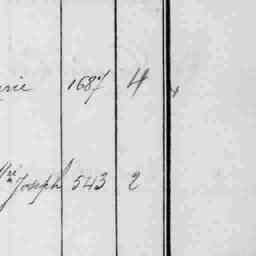 1687 4
Joseph 543 2